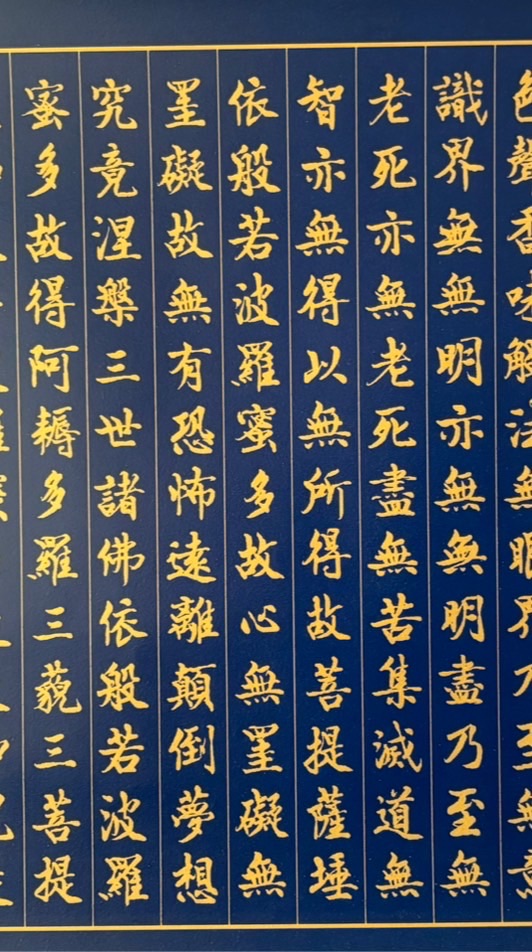 色聲香味觸法無眼界乃至無意
識界無無明亦無無明盡乃至無
老死亦無老死盡無苦集滅道無
智亦無得以無所得故菩提薩埵
依般若波羅蜜多故心無罣礙無
罣礙故無有恐怖遠離顛倒夢想
究竟涅槃三世諸佛依般若波羅
蜜多故得阿耨多羅三藐三菩提